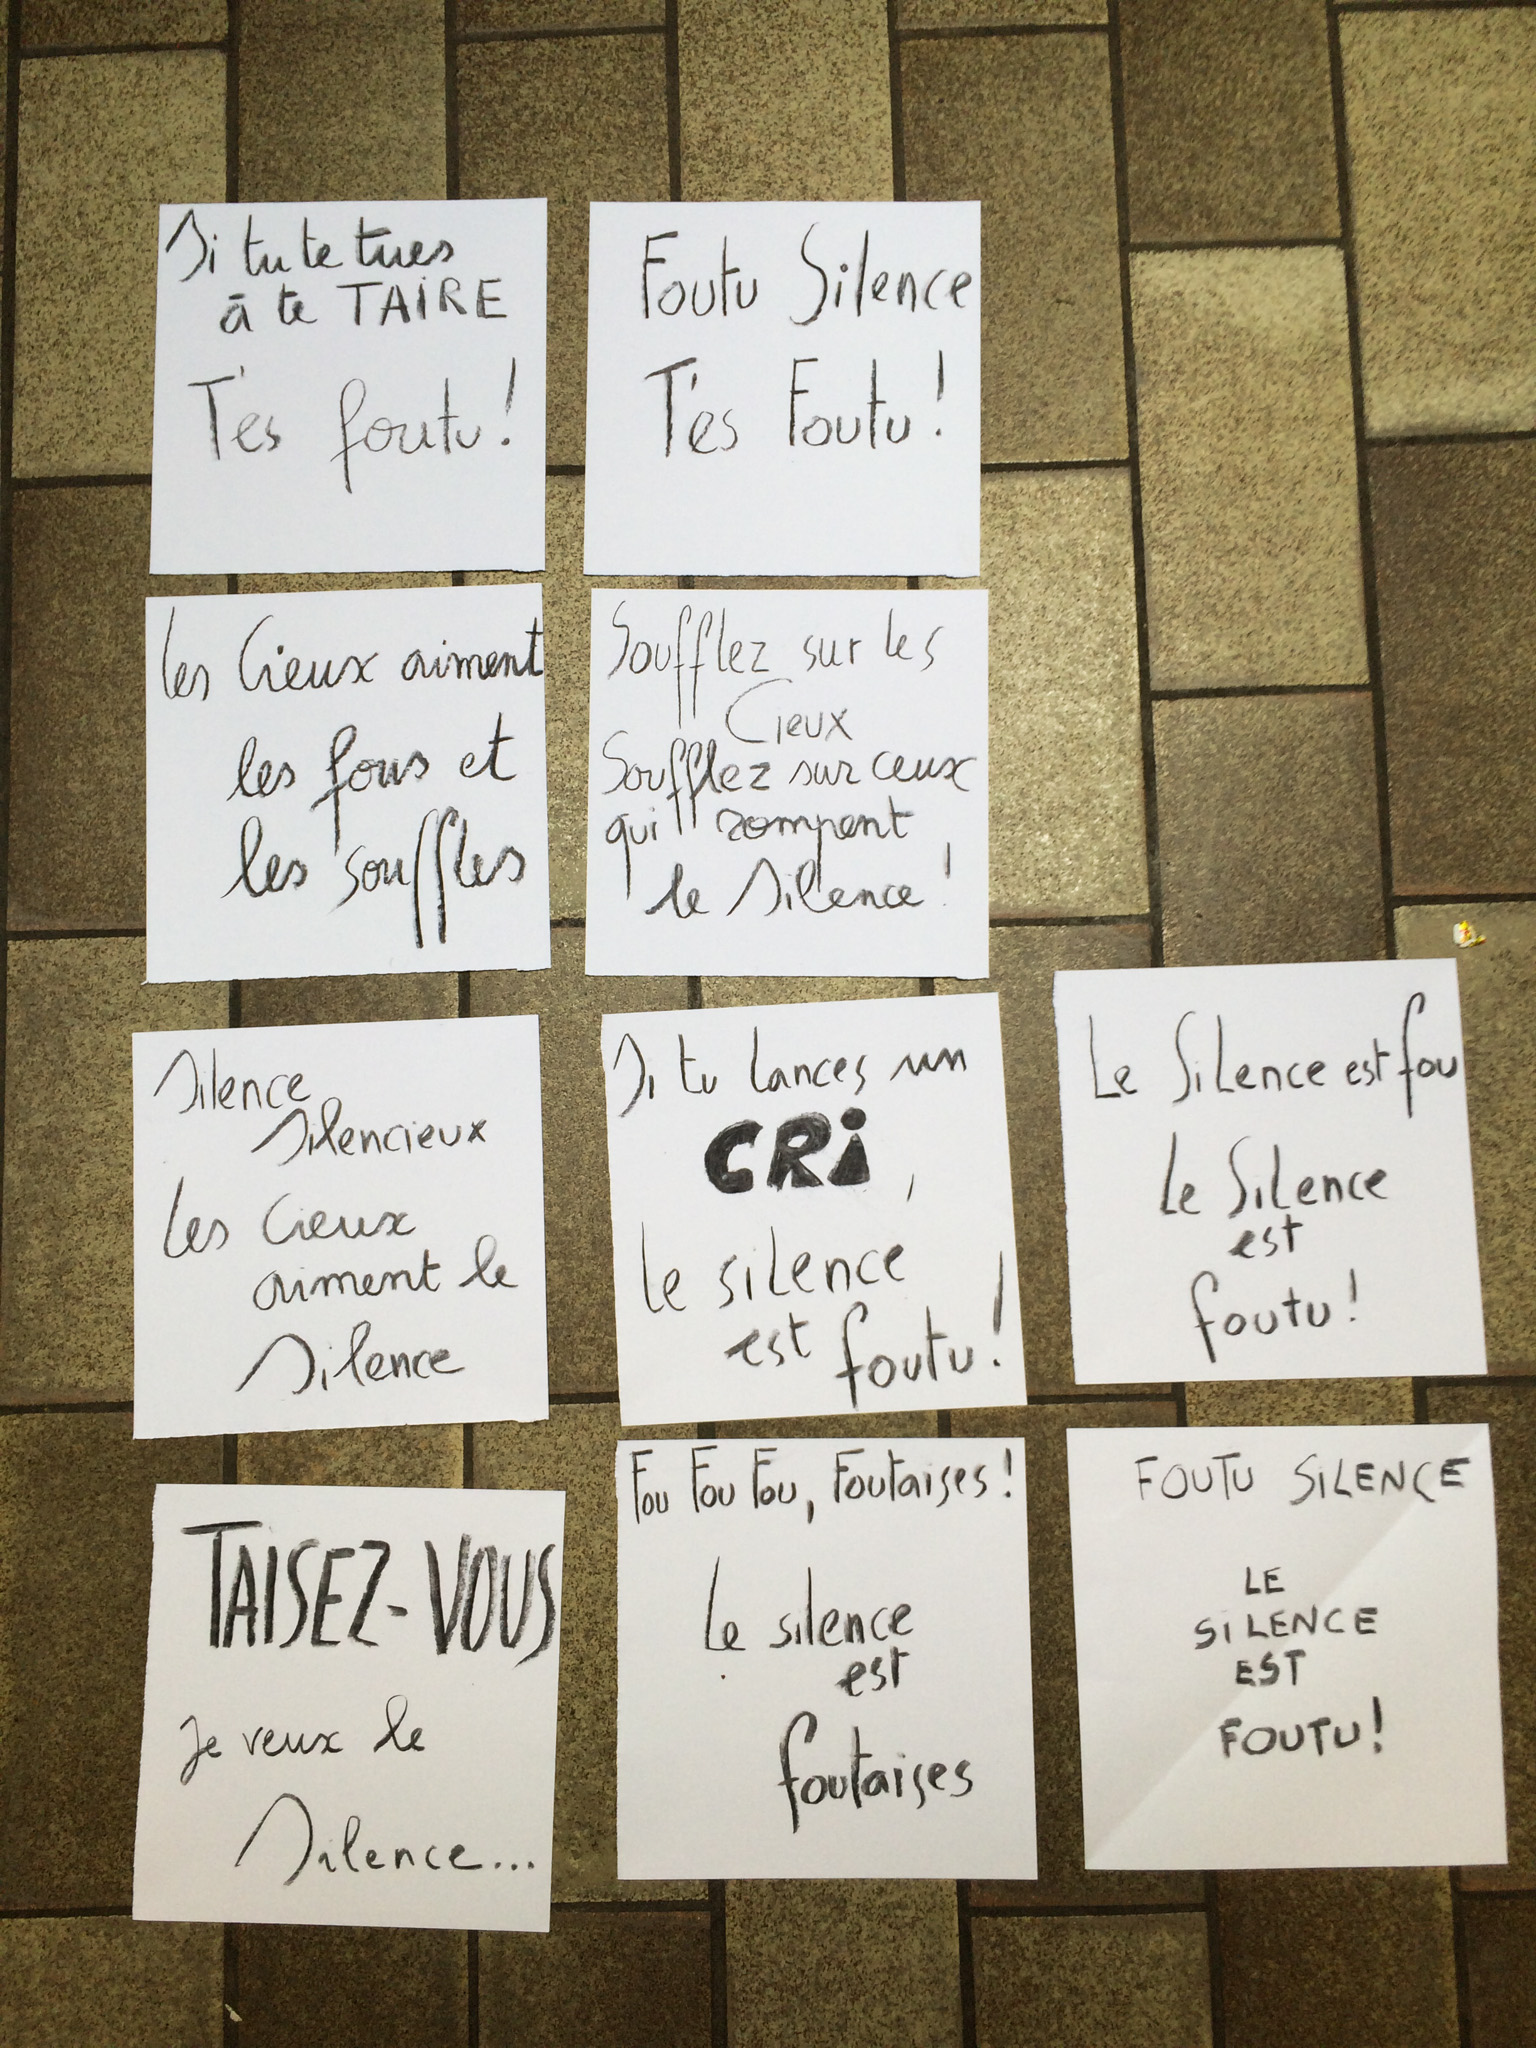 Si tu te tues
à te TAIRE
T'es foutu!
Foutu Silence
T'es Foutu!
Les Cieux aiment
les fous et
les souffles
Soufflez sur les
Cieux
Soufflez sur ceux
qui rompent
le Silence!
Silence
Silencieux
Les Cieux
aiment le
Silence
Si tu lances un
CRi,
Le silence
est foutu!
Le Silence est fou
Le Silence
est
foutu!
TAISEZ-VOUS
Je veux le
Silence...
Fou Fou Fou, Foutaises!
Le silence
est
foutaises
FOUTU SiLENCE
LE
SiLENCE
EST
FOUTU!